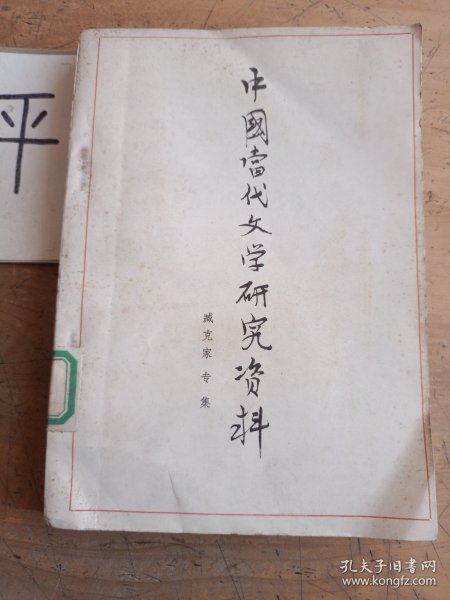 平
中國當代文学研究资料
臧克家专集
孔夫子旧书网
www.kongfz.com